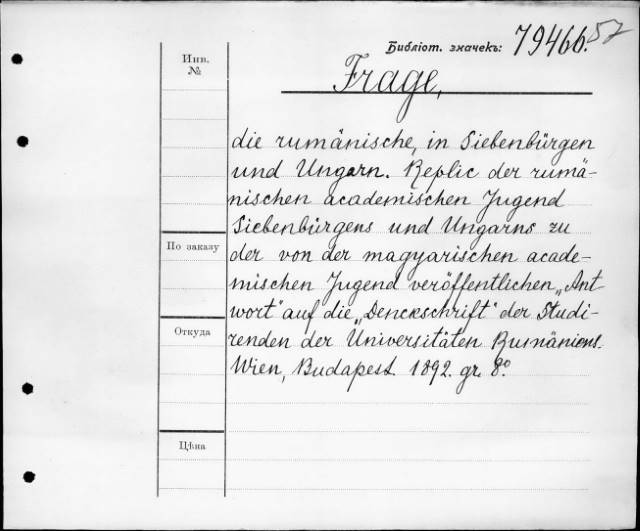 Библіот. значекъ: 79466. 57
Инв.
№
Frage,
die rumänische, in Siebenbürgen
und Ungarn. Replic der rumä-
nischen academischen Jugend
Siebenbürgens und Ungarns zu
der von der magyarischen acade-
mischen Jugend veröffentlichen „Ant-
wort" auf die „Denckschrift" der Studi-
renden der Universitäten Rumäniens.
Wien, Budapest. 1892. gr. 8º.
По заказу
Откуда
Цѣна